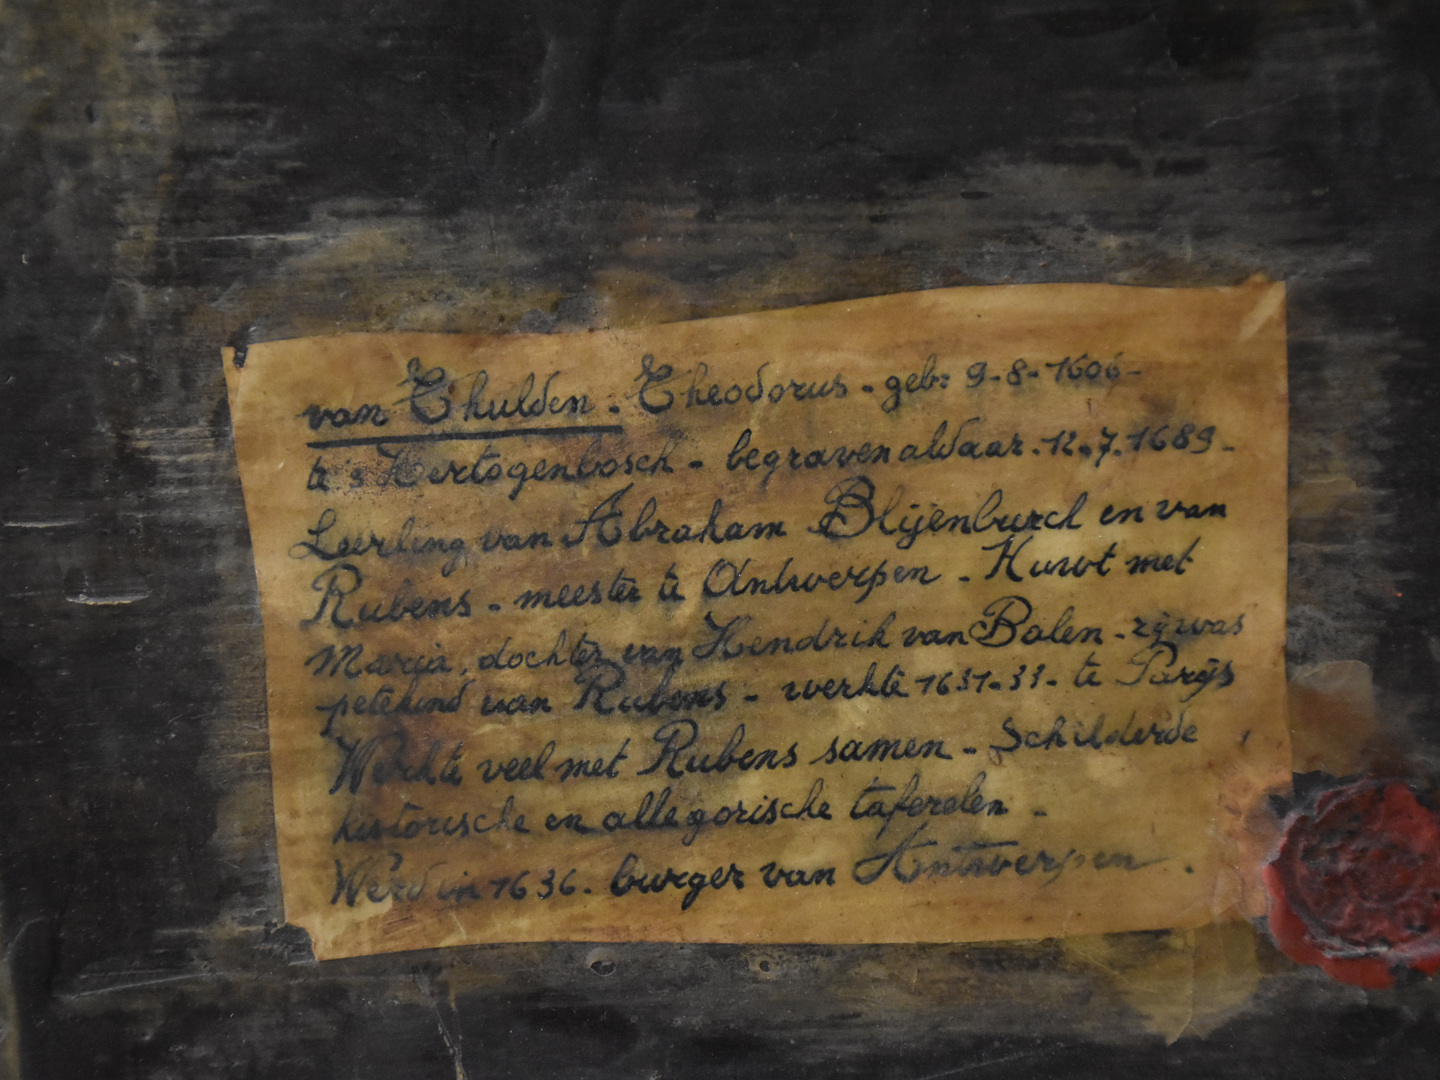 van Thulden. Theodorus - geb: 9-8-1606-
te 's Hertogenbosch - begraven aldaar. 12.7.1689-
Leerling van Abraham Blijenburch en van
Rubens - meester te Antwerpen - Huwt met
Maria, dochter van Hendrik van Balen - zij was
petekind van Rubens - werkte 1631-33- te Parijs
Werkte veel met Rubens samen - Schilderde
historische en allegorische taferelen -
Werd in 1636. burger van Antwerpen.